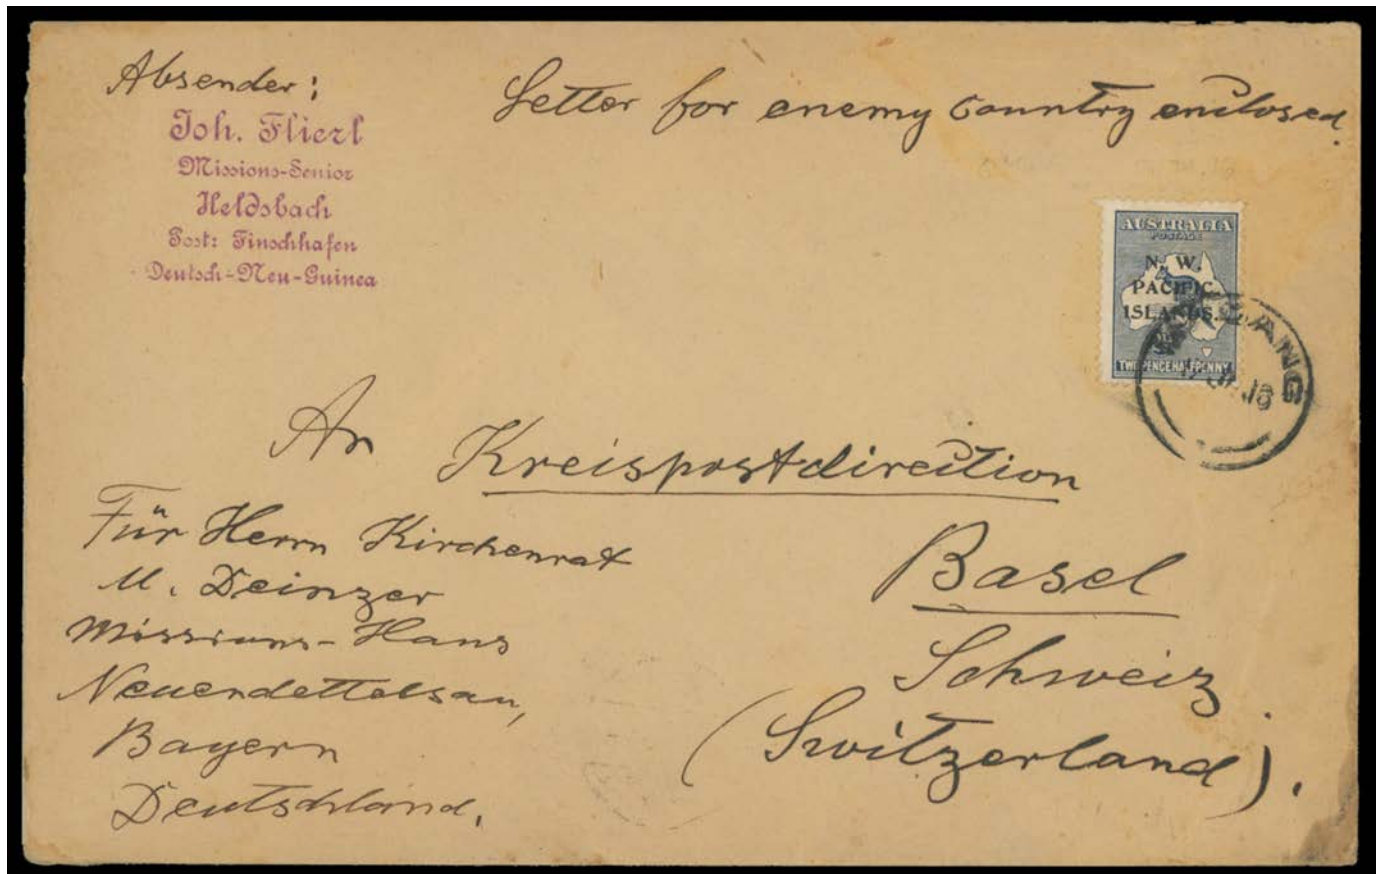 Absender:
Joh. Flierl
Missions-Senior
Heldsbach
Post: Finschhafen
Deutsch-Neu-Guinea
Letter for enemy country enclosed.
AUSTRALIA
POSTAGE
N. W.
PACIFIC
ISLANDS.
TWO PENCE HALFPENNY
An Kreispostdirection
Basel
Schweiz
(Switzerland).
Für Herrn Kirchenrat
M. Deinzer
Missions-Haus
Neuendettelsau,
Bayern
Deutschland.